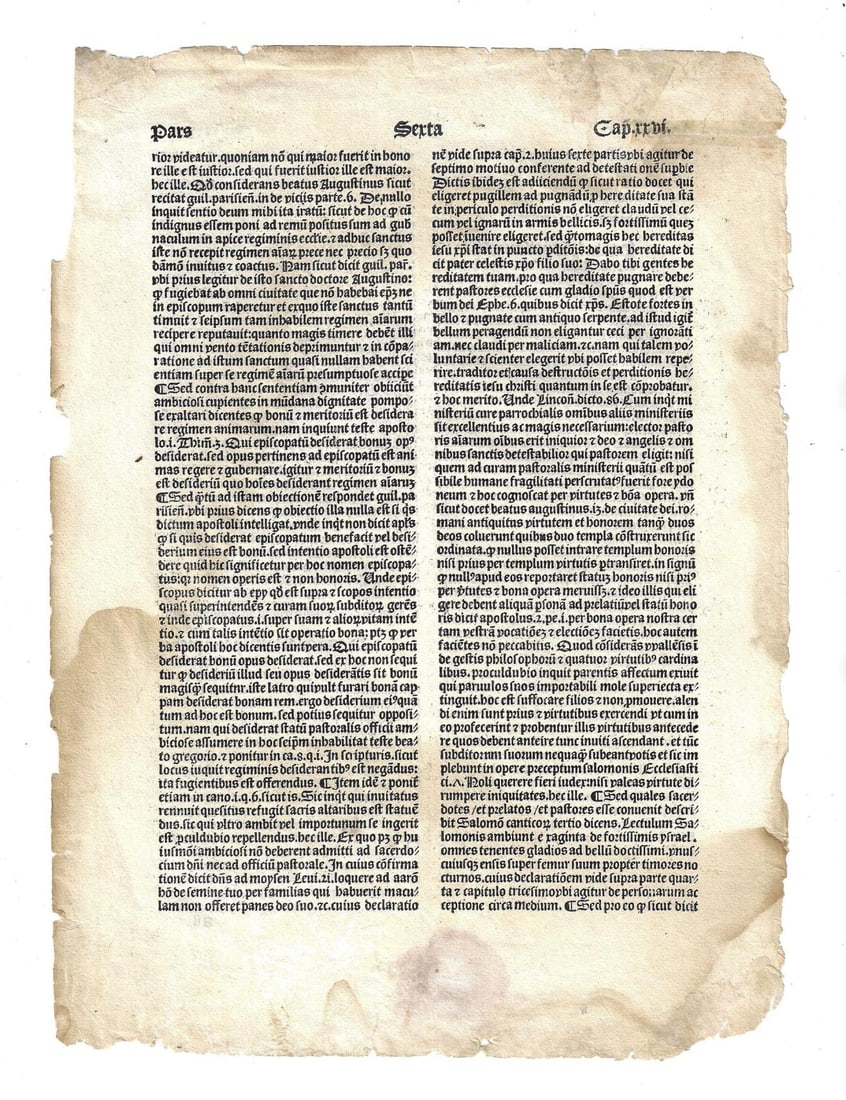 Pars Sexta Cap̄.xxvi.
rior videatur.quoniam nō qui maior fuerit in hono
re ille est iustior.sed qui fuerit iustior ille est maior.
hec ille. Qd̄ considerans beatus Augustinus sicut
recitat guil.parisieñ.in de vicijs parte.6. De.nullo
inquit sentio deum mihi ita iratū: sicut de hoc ꝙ cū
indignus essem poni ad remū positus sum ad gub̓
naculum in apice regiminis ecclīe.⁊ adhuc sanctus
iste nō recepit regimen aīaꝝ prece nec precio sꝫ quo
dāmō inuitus ⁊ coactus. Nam sicut dicit guil. par̄.
vbi prius legitur de isto sancto doctore Augustino:
ꝙ fugiebat ab omni ciuitate que nō habebat ep̄ꝫ ne
in episcopum raperetur et exquo iste sanctus tantū
timuit ⁊ seipsum tam inhabilem regimen aīarum
recipere reputauit:quanto magis timere debēt illi
qui omni vento tētationis deprimuntur ⁊ in cōpa⸗
ratione ad istum sanctum quasi nullam habent sci
entiam super se regimē aīarū presumptuose accipe
¶Sed contra hanc sententiam ↄmuniter obiiciūt
ambiciosi cupientes in mūdana dignitate pompo⸗
se exaltari dicentes ꝙ bonū ⁊ meritoriū est desidera
re regimen animarum.nam inquiunt teste aposto
lo.i.Thim̄.3. Qui episcopatū desiderat bonuꝫ opꝰ
desiderat.sed opus pertinens ad episcopatū est ani
mas regere ⁊ gubernare.igitur ⁊ meritoriū ⁊ bonuꝫ
est desideriū quo hoīes desiderant regimen aīaruꝫ
¶Sed q̄tū ad istam obiectionē respondet guil.pa
risieñ.vbi prius dicens ꝙ obiectio illa nulla est si q̄s
dictum apostoli intelligat.vnde inqt̄ non dicit apl̄s
ꝙ si quis desiderat episcopatum benefacit vel desi⸗
derium eius est bonū.sed intentio apostoli est ostē⸗
dere quid hic significetur per hoc nomen episcopa⸗
tus:qꝛ nomen operis est ⁊ non honoris. Unde epi⸗
scopus dicitur ab epp qd̄ est supra ⁊ scopos intentio
quasi superintendēs ⁊ curam suoꝝ subditoꝝ gerēs
⁊ inde ep̄iscopatus.i.super suam ⁊ alioꝝ vitam intē
tio.⁊ cum talis intētio sit operatio bona: ptꝫ ꝙ ver
ba apostoli hoc dicentis sunt vera. Qui episcopatū
desiderat bonū opus desiderat.sed ex hoc non sequi
tur ꝙ desideriū illud seu opus desideratis sit bonū
magisꝙ sequitur.iste latro qui vult furari bonā cap
pam desiderat bonam rem.ergo desiderium eiꝰ quā
tum ad hoc est bonum. sed potius sequitur opposi⸗
tum.nam qui desiderat statū pastoralis officii am⸗
biciose assumere in hoc seip̄m inhabilitat teste bea⸗
to gregorio.⁊ ponitur in ca.8.q.i. In scripturis.sicut
locus inquit regiminis desiderantibꝰ est negādus:
ita fugientibus est offerendus. ¶Item idē ⁊ ponit̄
etiam in cano.i.q.6.sicut is. Sic inqt̄ qui inuitatus
rennuit quesitus refugit sacris altaribus est statuē
dus.sic qui vltro ambit vel importunum se ingerit
est ꝓculdubio repellendus.hec ille. Ex quo pꝫ ꝙ hu
iusmōi ambiciosi nō deberent admitti ad sacerdo⸗
cium dn̄i nec ad officiū pastorale. In cuius cōfirma
tionē dicit dn̄s ad moysen Leui.21.loquere ad aarō
hō de semine tuo per familias qui habuerit macu⸗
lam non offeret panes deo suo.⁊c.cuius declaratio
nē vide supra cap̄.2.huius sexte partis vbi agitur de
septimo motiuo conferente ad detestati onē suꝑbie
Dictis ibideꝫ est adiiciendū ꝙ sicut ratio docet qui
eligeret pugillem ad pugnandū ꝓ here ditate sua stā
te in periculo perditionis nō eligeret claudū vel ce⸗
cum vel ignarū in armis bellicis.sꝫ fortissimū queꝫ
posset īuenire eligeret.sed q̄tomagis hec hereditas
iesu xp̄i stat in puncto ꝑditōis:de qua hereditate di
cit pater celestis xp̄o filio suo: Dabo tibi gentes he
reditatem tuam.pro qua hereditate pugnare debe⸗
rent pastores ecclesie cum gladio sp̄us quod est ver
bum dei Ephe.6.quibus dicit xp̄s. Estote fortes in
bello ⁊ pugnate cum antiquo serpente.ad istud igit̄
bellum peragendū non eligantur ceci per ignorāti
am.nec claudi per maliciam.⁊c.nam qui talem vo⸗
luntarie ⁊ scienter elegerit vbi posset habilem repe⸗
rire.traditor et causa destructōis et perditionis he⸗
reditatis iesu christi quantum in se est cōprobatur.
⁊ hoc merito. Unde Lincoñ.dicto.86. Cum inqt̄ mi
nisteriū cure parrochialis omībus aliis ministeriis
sit excellentius ac magis necessarium:elector pasto
ris aīarum oībus erit iniquior ⁊ deo ⁊ angelis ⁊ om
nibus sanctis detestabilior qui pastorem eligit: nisi
quem ad curam pastoralis ministerii quātū est pos
sibile humane fragilitati perscrutatꝰ fuerit fore ydo
neum ⁊ hoc cognoscat per virtutes ⁊ bōa opera. vn̄
sicut docet beatus augustinus.i3.de ciuitate dei.ro⸗
mani antiquitus virtutem et honorem tanq̄ duos
deos coluerunt quibus duo templa cōstruxerunt sic
ordinata.ꝙ nullus posset intrare templum honoris
nisi prius per templum virtutis ꝑtransiret.in signū
ꝙ nullꝰ apud eos reportaret statuꝫ honoris nisi priꝰ
per v̓tutes ⁊ bona opera meruissꝫ.⁊ ideo illis qui eli
gere debent aliquā ꝑsonā ad prelatiūꝫ vel statū hono
ris dicit apostolus.2.pe.i.per bona opera nostra cer
tam vestrā vocationeꝫ ⁊ electioneꝫ facietis.hoc autem
faciētes nō peccabitis. Quod cōsiderās vvallēsis ī
de gestis philosophorū ⁊ quatuor virtutibꝰ cardina
libus. proculdubio inquit parentis affectum exiuit
qui paruulos suos importabili mole superiecta ex⸗
tinguit.hoc est suffocare filios ⁊ non ꝓmouere.alen
di enim sunt prius ⁊ virtutibus exercendi vt cum in
eo profecerint ⁊ probentur illis virtutibus antecede
re quos debent anteire tunc inuiti ascendant . et tūc
subditorum suorum nequaꝙ sube antpotis et sic im
plebunt in opere preceptum salomonis Ecclesiasti
ci.7. Noli querere fieri iudex nisi valeas virtute di⸗
rumpere iniquitates.hec ille. ¶Sed quales sacer⸗
dotes /et prelatos /et pastores esse conuenit descri⸗
bit Salomō canticoꝝ tertio dicens. Lectulum Sa⸗
lomonis ambiunt sexaginta de fortissimis ysrael.
omnes tenentes gladios ad bellū doctissimi.vnus⸗
cuiusqꝫ ensis super femur suum propter timores no
cturnos.cuius declarationem vide supra parte quar⸗
ta ⁊ capitulo tricesimo vbi agitur de personarum ac
ceptione circa medium. ¶Sed pro eo ꝙ sicut dicit